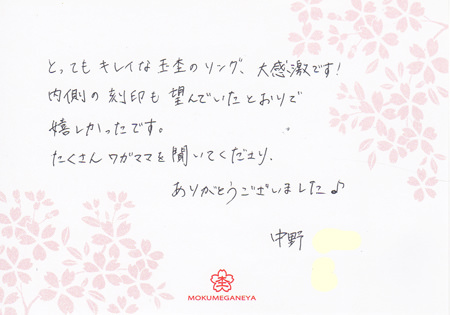 とってもキレイな玉杢のリング、大感激です!
内側の刻印も望んでいたとおりで
嬉しかったです。
たくさんワガママを聞いてくださり、
ありがとうございました♪
中野
MOKUMEGANEYA